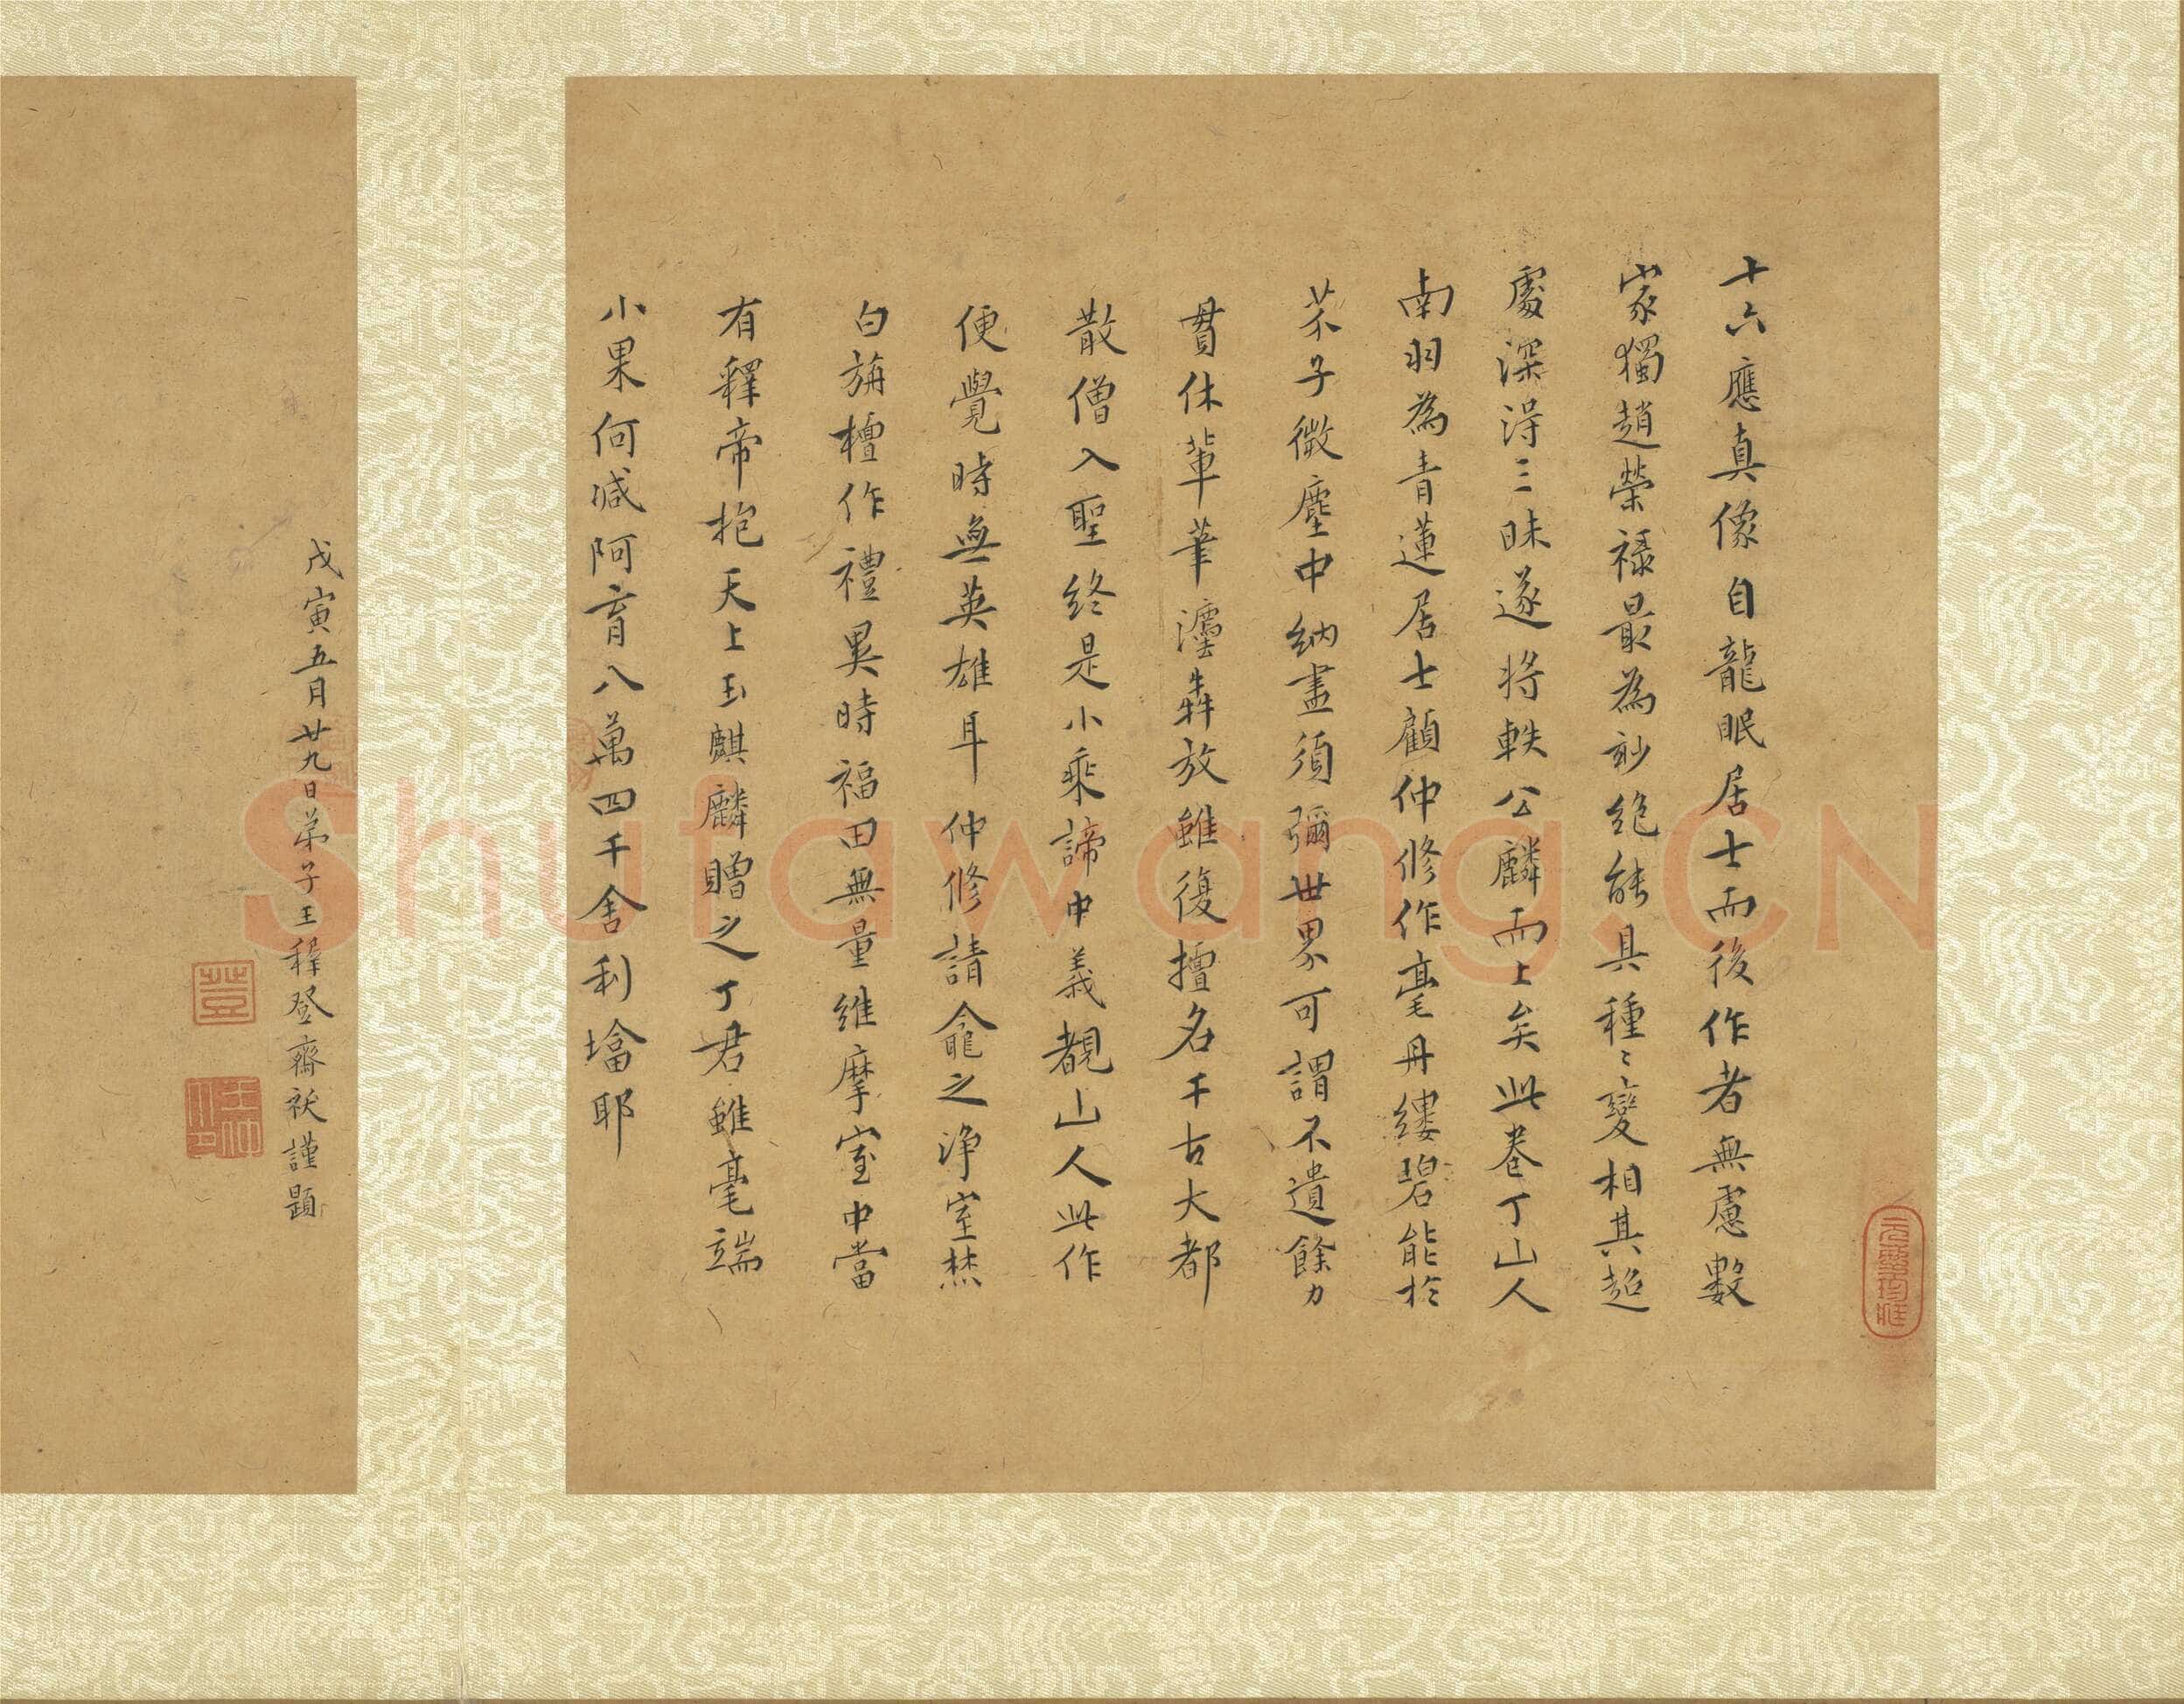 十六應真像自龍眠居士而後作者無慮數
家獨趙榮祿最為妙絕能具種〻變相其超
處深得三昧遂將軼公麟而上矣此卷丁山人
南羽為青蓮居士顧仲修作毫丹縷碧能於
芥子微塵中納盡須彌世界可謂不遺餘力
貫休輩筆灋犇放雖復擅名千古大都
散僧入聖終是小乘諦中義覩山人此作
便覺時無英雄耳仲修請龕之淨室焚
白旃檀作禮異時福田無量維摩室中當
有釋帝抱天上玉麒麟贈之丁君雖毫端
小果何減阿育八萬四千舍利塔耶
戊寅五月廿九日弟子王穉登齋祓謹題
Shufawang.CN